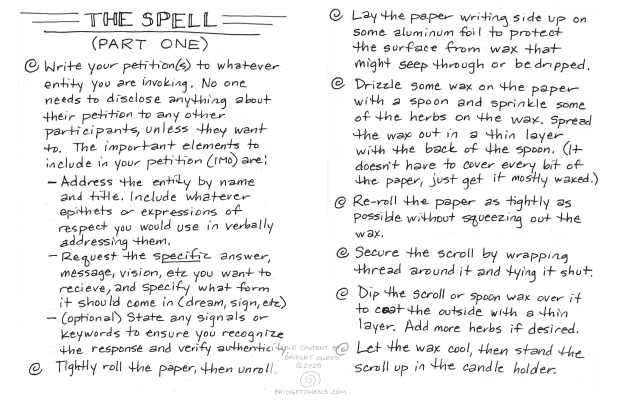 THE SPELL
(PART ONE)
@ Write your petition(s) to whatever
entity you are invoking. No one
needs to disclose anything about
their petition to any other
participants, unless they want
to. The important elements to
include in your petition (IMO) are:
- Address the entity by name
and title. Include whatever
epithets or expressions of
respect you would use in verbally
addressing them.
- Request the specific answer,
message, vision, etc you want to
recieve, and specify what form
it should come in (dream, sign, etc)
- (optional) State any signals or
keywords to ensure you recognize
the response and verify authenticity.
@ Tightly roll the paper, then unroll.
@ Lay the paper writing side up on
some aluminum foil to protect
the surface from wax that
might seep through or be dripped.
@ Drizzle some wax on the paper
with a spoon and sprinkle some
of the herbs on the wax. Spread
the wax out in a thin layer
with the back of the spoon. (It
doesn't have to cover every bit of
the paper, just get it mostly waxed.)
@ Re-roll the paper as tightly as
possible without squeezing out the
wax.
@ Secure the scroll by wrapping
thread around it and tying it shut.
@ Dip the scroll or spoon wax over it
to coat the outside with a thin
layer. Add more herbs if desired.
@ Let the wax cool, then stand the
scroll up in the candle holder.
CONTENT
BRIDGET OWENS
©2025
BRIDGETOWENS.COM